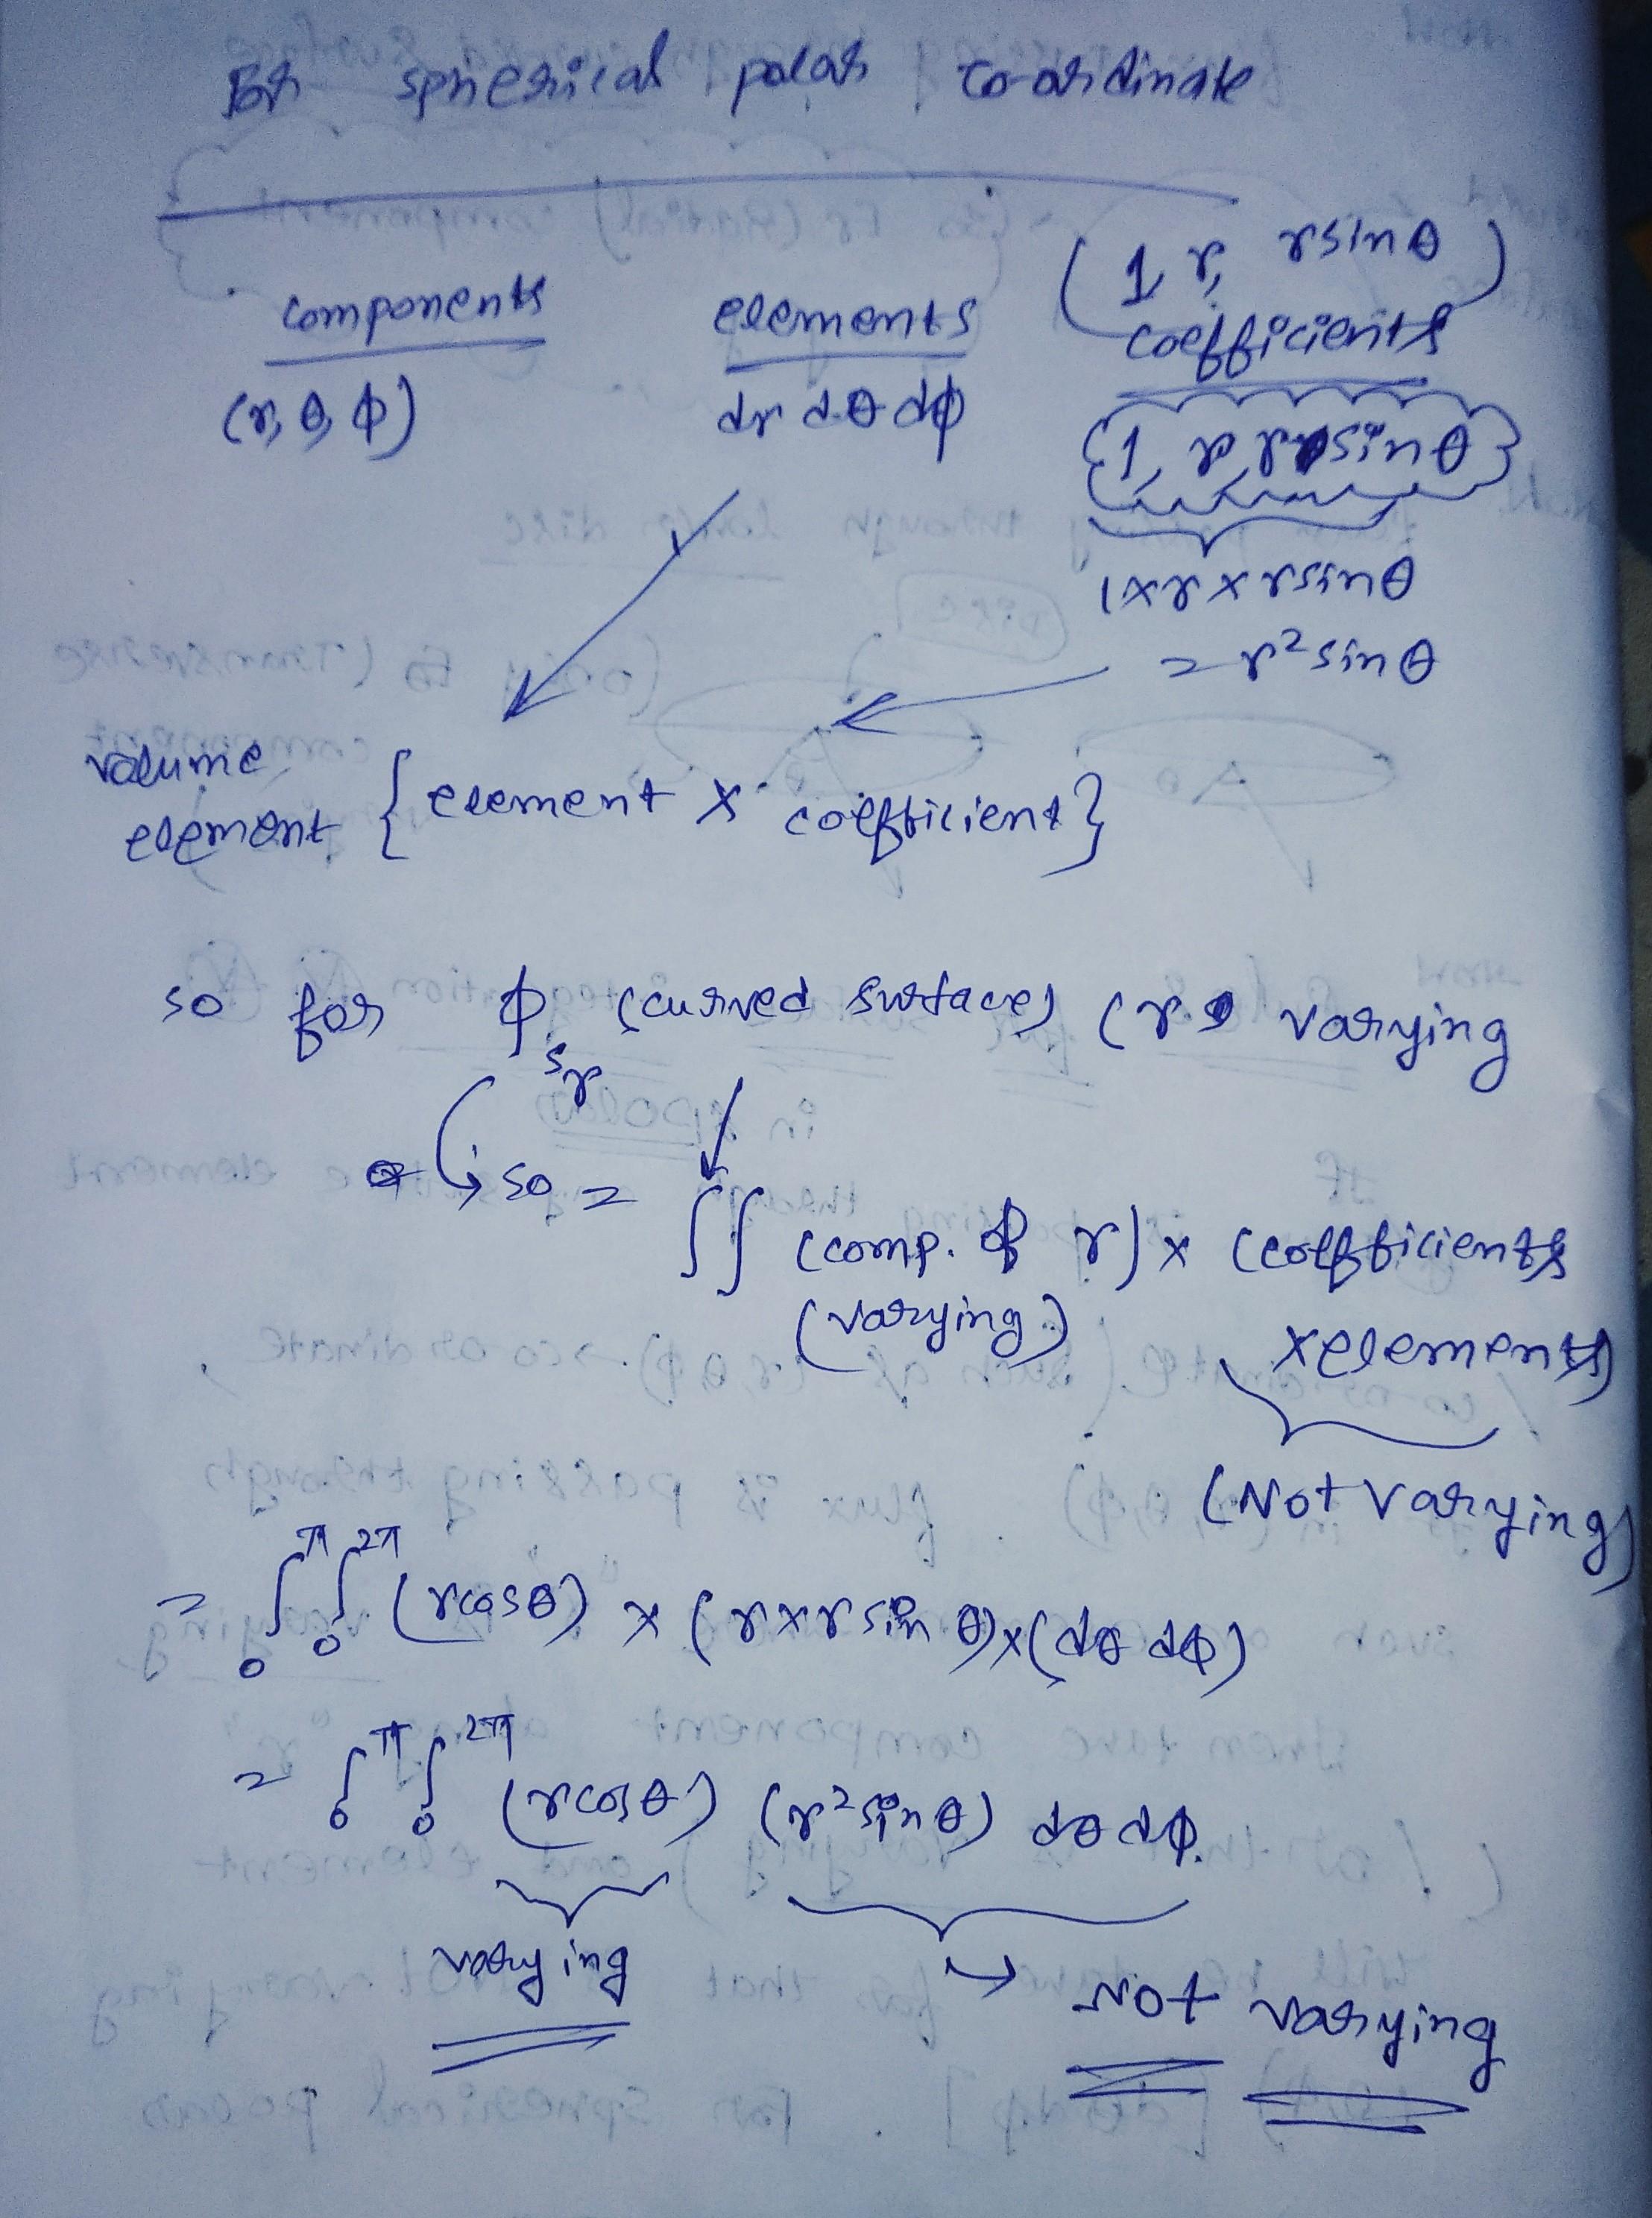 For spherical polar co-ordinate
components
(r, θ, ϕ)
elements
dr dθ dϕ
(1, r, rsinθ)
coefficients
{1, r, rsinθ}
1×r×rsinθ
= r²sinθ
volume
element {element × coefficient}
so for ϕ (curved surface) (r varying
Sr
so = ∫∫ (comp. of r) × (coefficients
(varying)
×elements)
(Not varying)
= ∫₀^π ∫₀^2π (rcosθ) × (r×rsinθ)×(dθ dϕ)
= ∫₀^π ∫₀^2π (rcosθ) (r²sinθ) dθ dϕ.
varying
→ Not varying